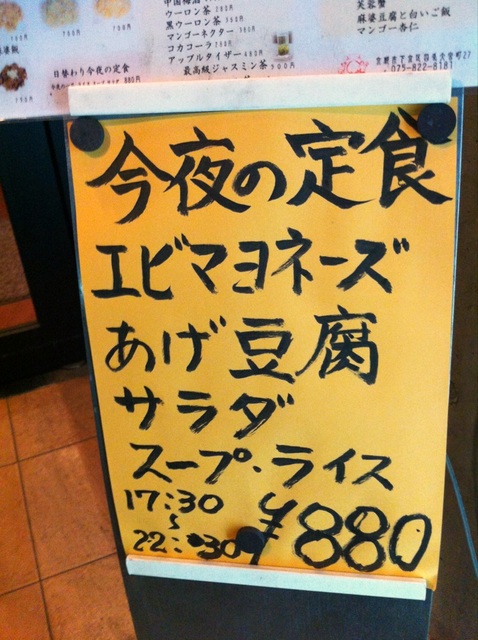 中国梅酒
ウーロン茶 280円
黒ウーロン茶 360円
マンゴーネクター 380円
コカコーラ 200円
アップルタイザー 400円
最高級ジャスミン茶 500円
芙蓉蟹
麻婆豆腐と白いご飯
マンゴー杏仁
京都市下京区四条大宮町27
075-822-8181
780円
780円
日替わり今夜の定食
880円
今夜の定食
エビマヨネーズ
あげ豆腐
サラダ
スープ・ライス
17:30
~
22:30
¥880